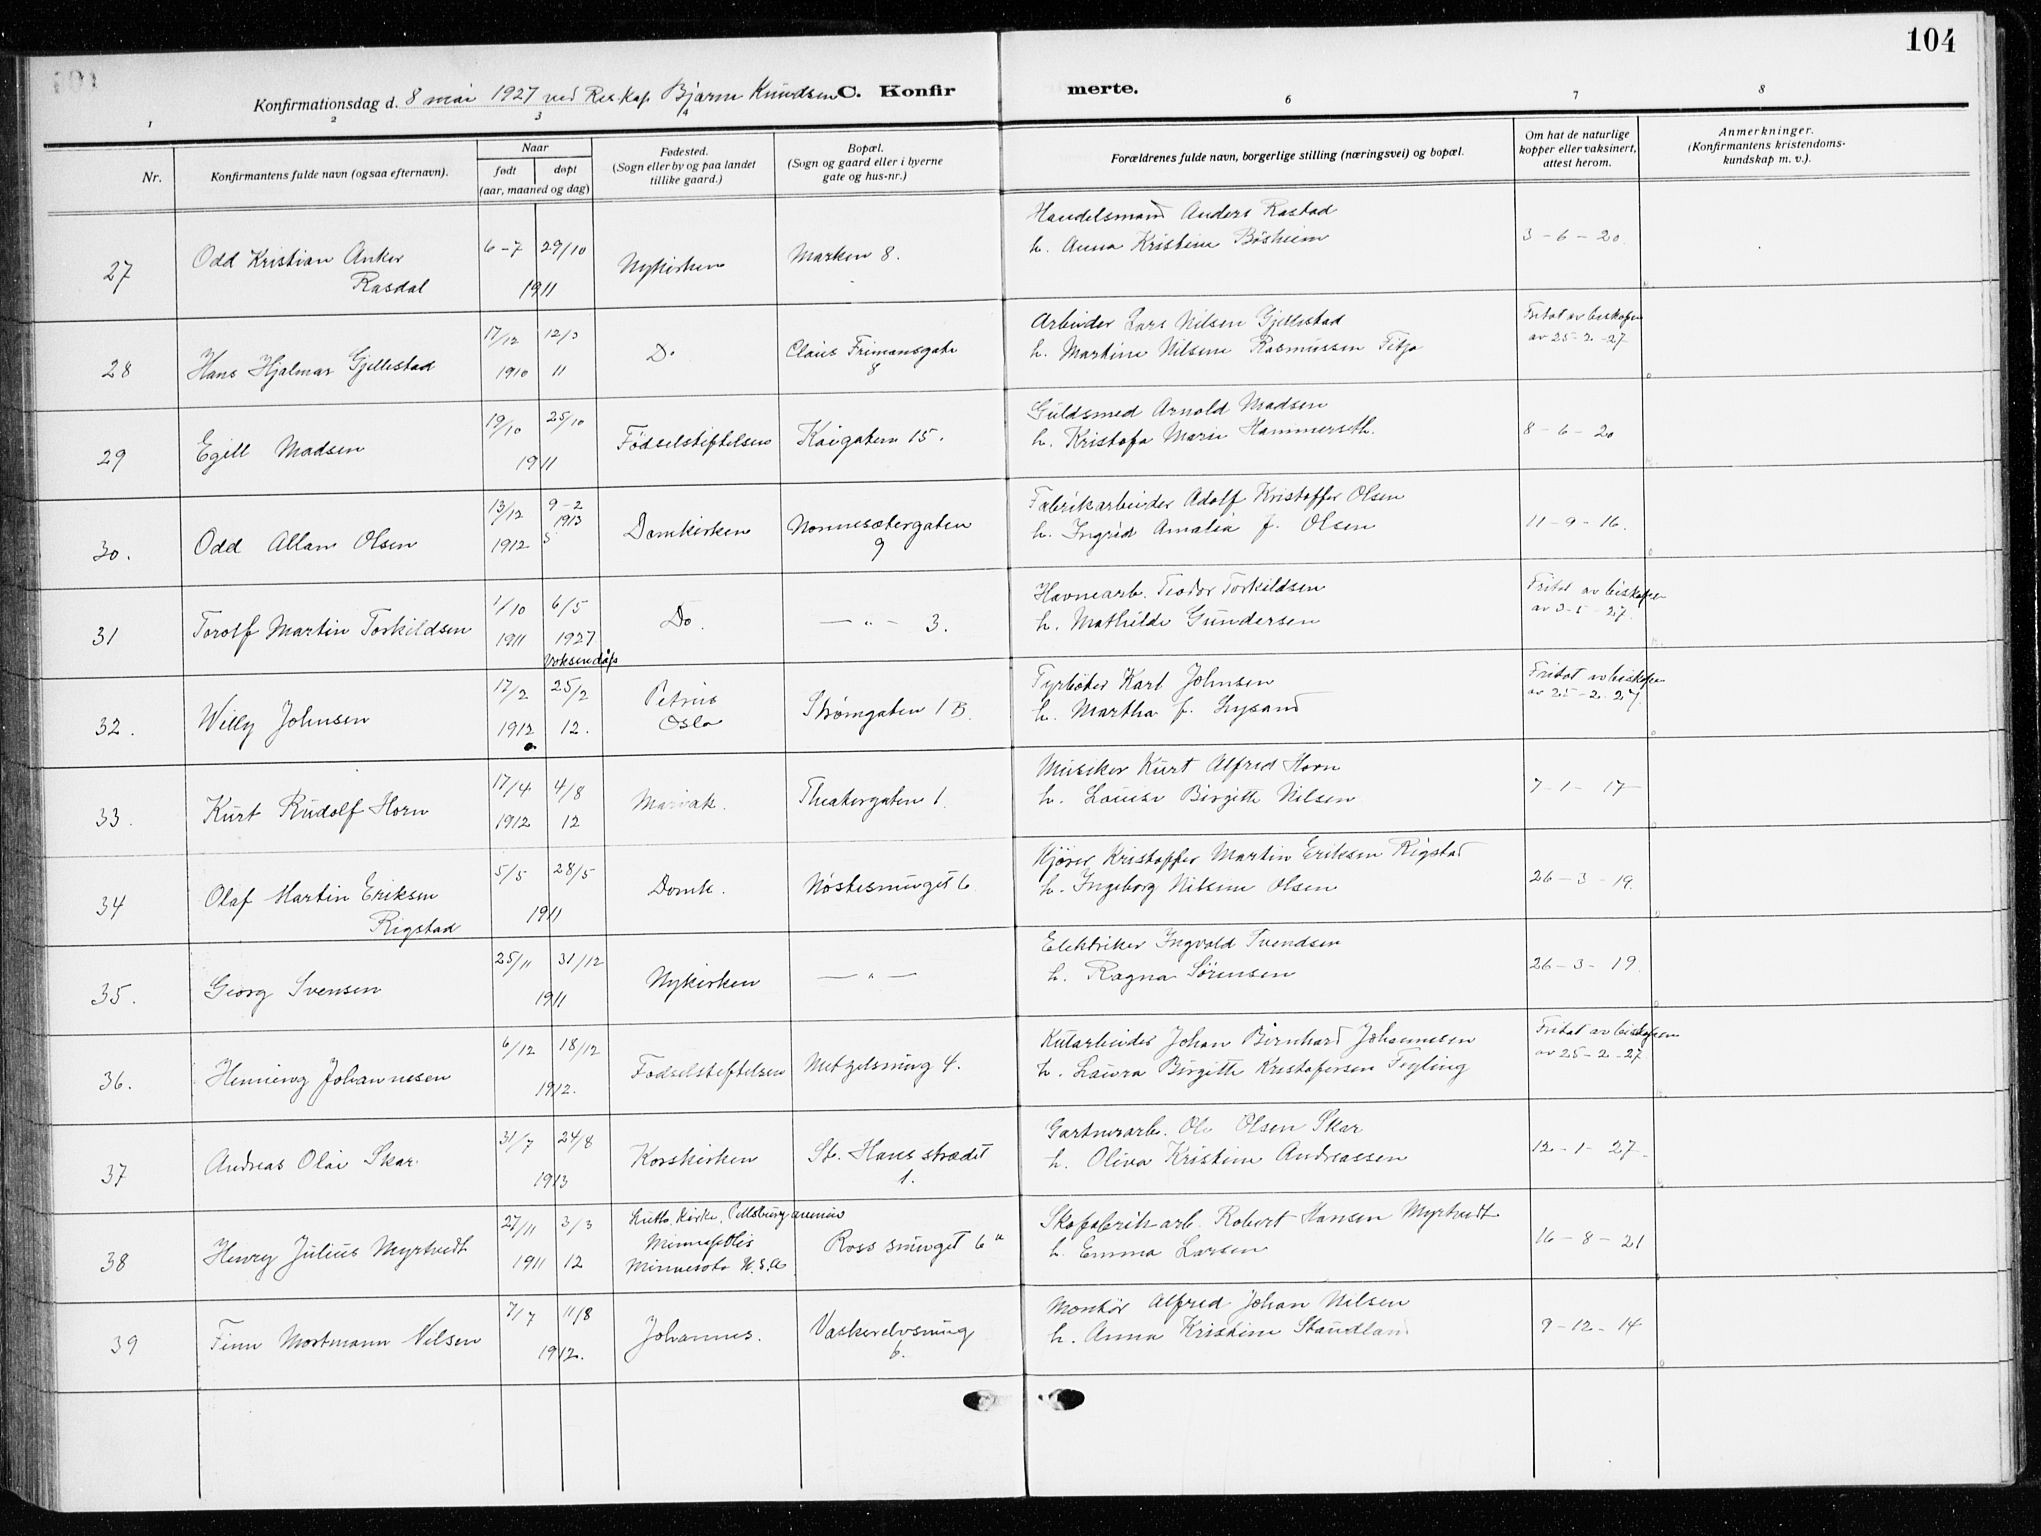 104
Konfirmationsdag d. 8 mai 1927 ved Res. kap. Bjarne Knudsen C. Konfir merte.
1 2 3 4 6 7 8
Nr.
Konfirmantens fulde navn (ogsaa efternavn).
Naar
født
døpt
(aar, maaned og dag)
Fødested.
(Sogn eller by og paa landet
tillike gaard.)
Bopæl.
(Sogn og gaard eller i byerne
gate og hus-nr.)
Forældrenes fulde navn, borgerlige stilling (næringsvei) og bopæl.
Om hat de naturlige
kopper eller vaksinert,
attest herom.
Anmerkninger.
(Konfirmantens kristendoms-
kundskap m. v.).
27
Odd Kristian Anker
Rasdal
6-7 29/10
1911
Nykirken
Marken 8.
Handelsmand Anders Rastad
h. Anna Kristine Bøsheim
3-6-20.
28
Hans Hjalmar Gjellestad
17/12 12/3
1910 11
Do
Claus Frimansgate
8
Arbeider Lars Nilsen Gjellestad
h. Martine Nilsine Rasmussen Titjo
Fritat av biskopen
av 25-2-27
29
Egill Madsen
19/10 25/10
1911
Födselstiftelsen
Kaigaten 15.
Guldsmed Arnold Madsen
h. Kristofa Marie Hammerseth.
8-6-20
30.
Odd Allan Olsen
13/12 9-2
1913
1912
5
Domkirken
Nonnesætergaten
9
Fabrikarbeider Adolf Kristoffer Olsen
h. Ingrid Amalia f. Olsen
11-9-16.
31
Torolf Martin Torkildsen
1/10 6/5
1911 1927
Voksendåp
Do.
— " — 3.
Havnearb. Teodor Torkildsen
h. Mathilde Gundersen
Fritat av biskopen
av 3-5-27.
32.
Willy Johnsen
17/2 25/2
1912 12.
Petrus
Oslo
Strømgaten 1 B.
Fyrbøter Karl Johnsen
h. Martha f. Lysand
Fritat av biskopen
av 25-2-27.
33.
Kurt Rudolf Horn
17/4 4/8
1912 12
Mariak.
Theatergaten 1.
Musiker Kurt Alfred Horn
h. Louise Birgitte Nilsen
7-1-17
34
Olaf Martin Eriksen
Rigstad
5/5 28/5
1911
Domk.
Nøstesmuget 6
Kjører Kristoffer Martin Eriksen Rigstad
h. Ingeborg Nilsine Olsen
26-3-19.
35.
Georg Svensen
25/11 31/12
1911
Nykirken
— " —
Elektriker Ingvald Svendsen
h. Ragna Sörensen
26-3-19.
36.
Henning Johannesen
6/12 18/12
1912.
Fødselstiftelsen
Metzelsmug 4.
Kularbeider Johan Bernhard Johannesen
h. Laura Birgitte Kristofersen Tryling
Fritat av biskopen
av 25-2-27
37
Andreas Olai Skar.
31/7 24/8
1913
Korskirken
St. Hans strædet
1.
Gartnerarb. Ole Olsen Skar
h. Oliva Kristine Andreassen
12-1-27.
38
Henry Julius Myrtvedt
27/11 3/3
1911 12
Luth. Kirke, Pillsbury avenue
Minneapolis
Minnesota U.S.A
Ross smuget 6a
Skofabrik arb. Robert Hansen Myrtvedt
h. Emma Larsen
16-8-21
39
Finn Mortmann Nilsen
7/7 11/8
1912.
Johannes.
Vaskerelvsmug
6.
Montör Alfred Johan Nilsen
h. Anna Kristine Staudland
9-12-14